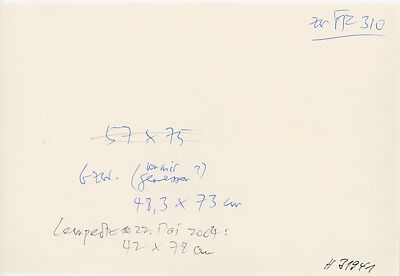 zur FR 310
57 x 75
bzw. (von mir gemessen?)
48,3 x 73 cm
22. Mai 2004:
42 x 78 cm
H 31941